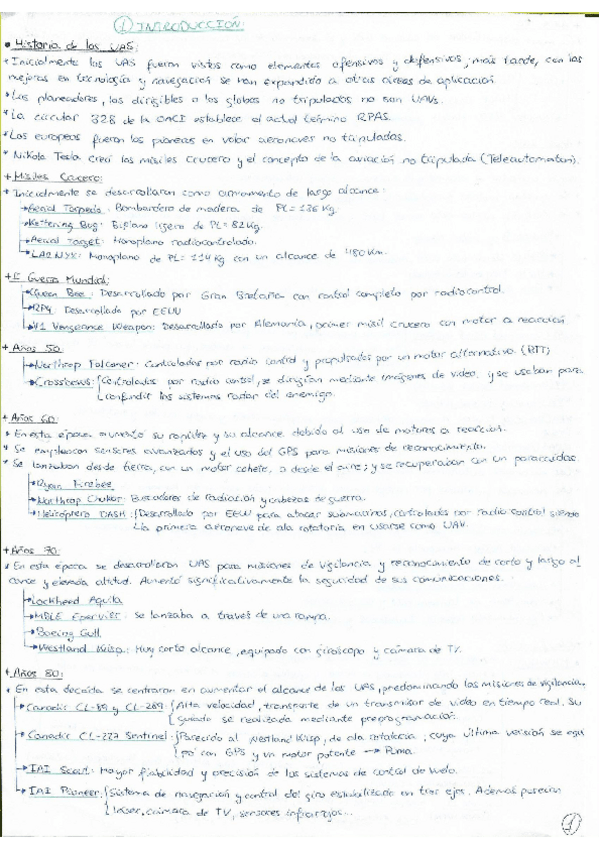 ① INTRODUCCIÓN:
• Historia de los UAS:
* Inicialmente los UAS fueron vistos como elementos ofensivos y defensivos; más tarde, con las
mejoras en tecnología y navegación se han expandido a otras áreas de aplicación
* Los planeadores, los dirigibles o los globos no tripulados no son UAVs.
* La circular 328 de la OACI establece el actual término RPAS.
* Los europeos fueron los pioneros en volar aeronaves no tripuladas.
* Nikola Tesla creó los misiles crucero y el concepto de la aviación no tripulada (Teleautomaton).
+ Misiles Crucero:
* Inicialmente se desarrollaron como armamento de largo alcance:
→ Aerial Torpedo: Bombardero de madera de PL = 136 Kg.
→ Kettering Bug: Biplano ligero de PL = 82 Kg.
→ Aerial Target: Monoplano radiocontrolado.
→ LARYNX: Monoplano de PL = 114 Kg con un alcance de 480 Km.
+ II Guerra Mundial:
→ Queen Bee: Desarrollado por Gran Bretaña con control completo por radiocontrol.
→ RP4: Desarrollado por EEUU
→ V1 Vengeance Weapon: Desarrollado por Alemania, primer misil crucero con motor a reacción
+ Años 50:
→ Northrop Falconer: Controlados por radio control y propulsados por un motor alternativo. (RTT)
→ Crossbows: Controlados por radio control, se dirigían mediante imágenes de video, y se usaban para
confundir los sistemas radar del enemigo.
+ Años 60:
* En esta época aumentó su rapidez y su alcance debido al uso de motores a reacción.
* Se emplearon sensores avanzados y el uso del GPS para misiones de reconocimiento.
* Se lanzaban desde tierra, con un motor cohete, o desde el aire; y se recuperaban con un paracaídas.
→ Ryan Firebee
→ Northrop Chukar: Buscadores de radiación y cabezas de guerra.
→ Helicóptero DASH: Desarrollado por EEUU para atacar submarinos, controlados por radio control siendo
la primera aeronave de ala rotatoria en usarse como UAV.
+ Años 70:
* En esta época se desarrollaron UAS para misiones de vigilancia y reconocimiento de corto y largo al
cance y elevada altitud. Aumentó significativamente la seguridad de sus comunicaciones.
→ Lockheed Aquila
→ MBLE Epervier: Se lanzaba a través de una rampa.
→ Boeing Gull
→ Westland Wisp: Muy corto alcance, equipado con giroscopo y cámara de TV.
+ Años 80:
* En esta decáda se centraron en aumentar el alcance de los UAS, predominando las misiones de vigilancia.
→ Canadir CL-89 y CL-289: Alta velocidad, transporte de un transmisor de video en tiempo real. Su
guiado se realizaba mediante preprogramación.
→ Canadir CL-227 Sentinel: Parecido al Westland Wisp, de ala rotatoria, cuya última versión se equi
pó con GPS y un motor potente → Puma.
→ IAI Scout: Mayor fiabilidad y precisión de los sistemas de control de vuelo.
→ IAI Pioneer: Sistema de navegación y control del giro estabilizado en tres ejes. Además poseían
láser, cámara de TV, sensores infrarrojos...
①